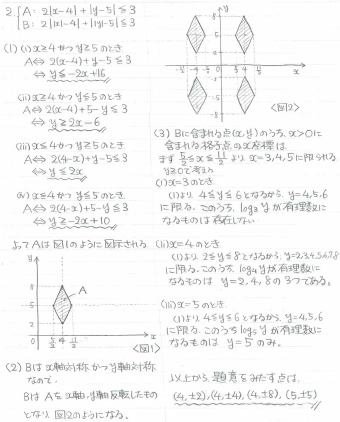 2. A: 2|x-4|+|y-5|≦3
B: 2||x|-4|+||y|-5|≦3
(1) (i) x≧4かつy≧5のとき
A⇔ 2(x-4)+y-5≦3
⇔ y≦-2x+16
(ii) x≧4かつy≦5のとき
A⇔ 2(x-4)+5-y≦3
⇔ y≧2x-6
(iii) x≦4かつy≧5のとき
A⇔ 2(4-x)+y-5≦3
⇔ y≦2x
(iv) x≦4かつy≦5のとき
A⇔ 2(4-x)+5-y≦3
⇔ y≧-2x+10
よってAは図1のように図示される.
y
8
5
2
A
5/2 4 11/2
x
<図1>
(2) Bはx軸対称かつy軸対称
なので,
BはAをx軸,y軸反転したもの
となり 図2のようになる.
y
8
5
2
-11/2 -4 -5/2
5/2 4 11/2
x
-2
-5
-8
<図2>
(3) Bに含まれる点(x,y)のうち, x>0に
含まれる格子点のx座標は,
まず 5/2≦x≦11/2 より x=3,4,5に限られる
y≧0で考える
(i) x=3のとき
(1)より 4≦y≦6となるから, y=4,5,6
に限る. このうち, log₃yが有理数に
なるものは存在しない
(ii) x=4のとき
(1)より 2≦y≦8となるから, y=2,3,4,5,6,7,8
に限る. このうち log₄yが有理数に
なるものは y=2,4,8の3つである。
(iii) x=5のとき.
(1)より 4≦y≦6となるから, y=4,5,6
に限る. このうち log₅yが有理数に
なるものは y=5のみ。
以上から, 題意をみたす点は,
(4,±2),(4,±4),(4,±8),(5,±5)